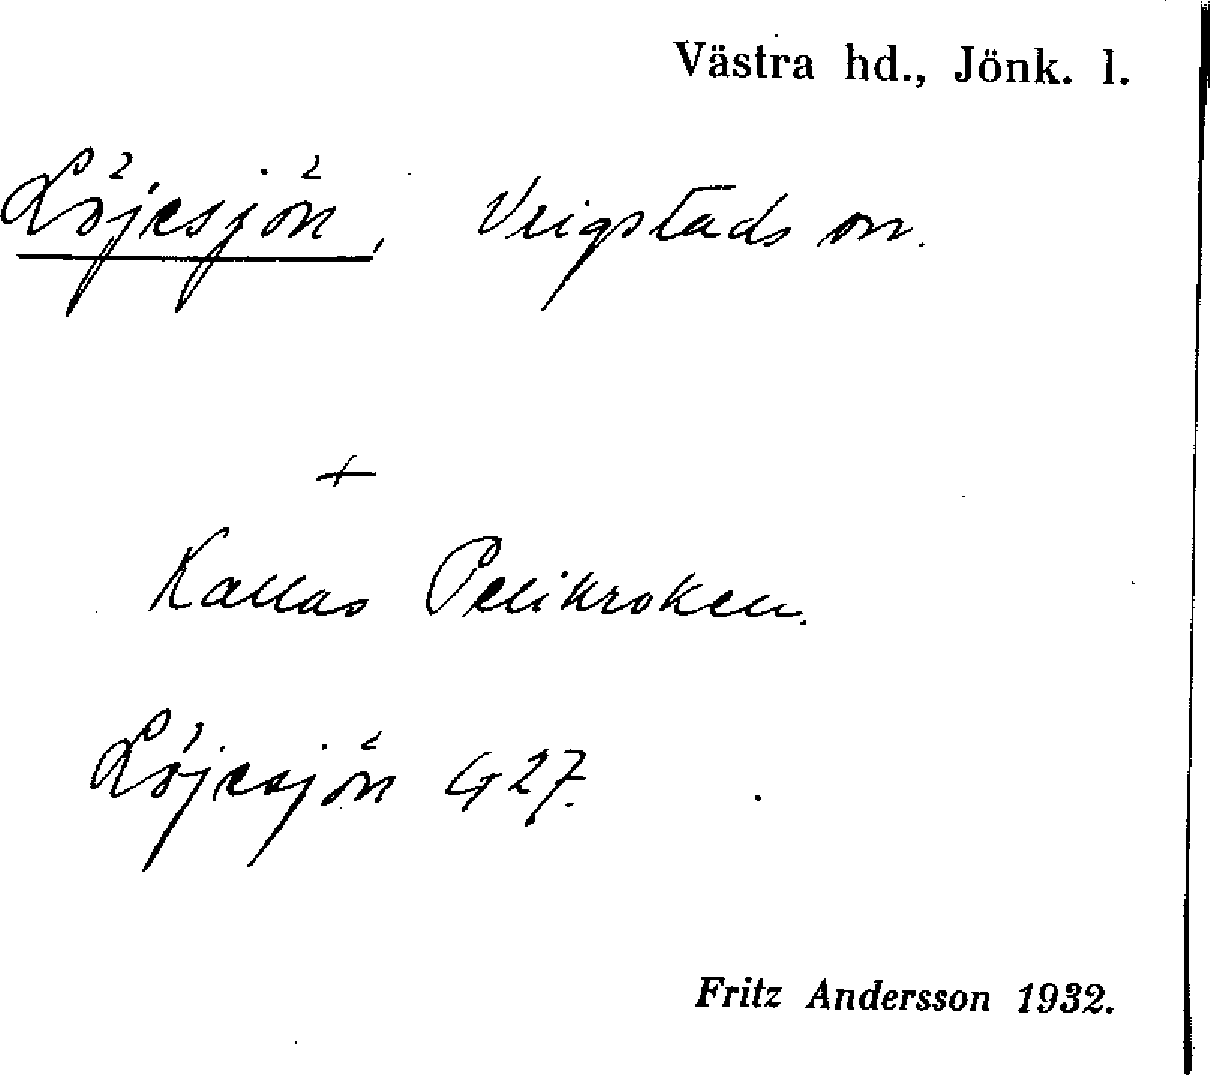 Västra hd., Jönk. l.
Löjesjön, Vrigstads sn.
+
Kallas Pelikroken.
Löjesjön G27.
Fritz Andersson 1932.